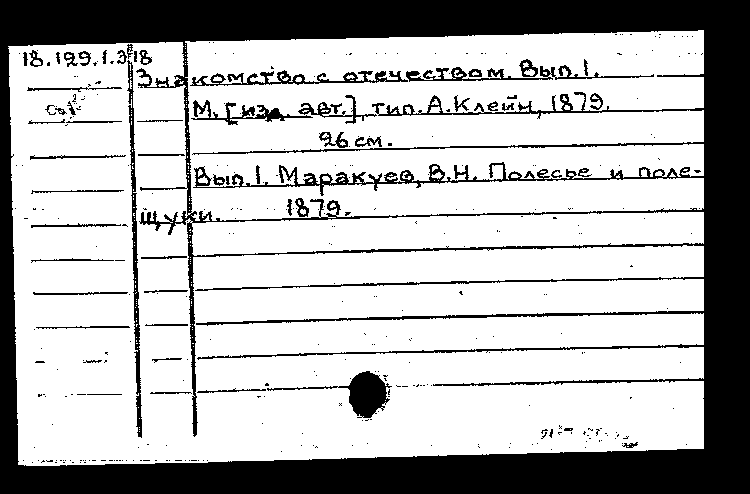 18.199.1.318
Знакомство с отечеством. Вып.1.
М. [изд. авт.], тип. А. Клейн, 1879.
26 см.
Вып.1. Маракуев, В.Н. Полесье и поле-
щуки. 1879.